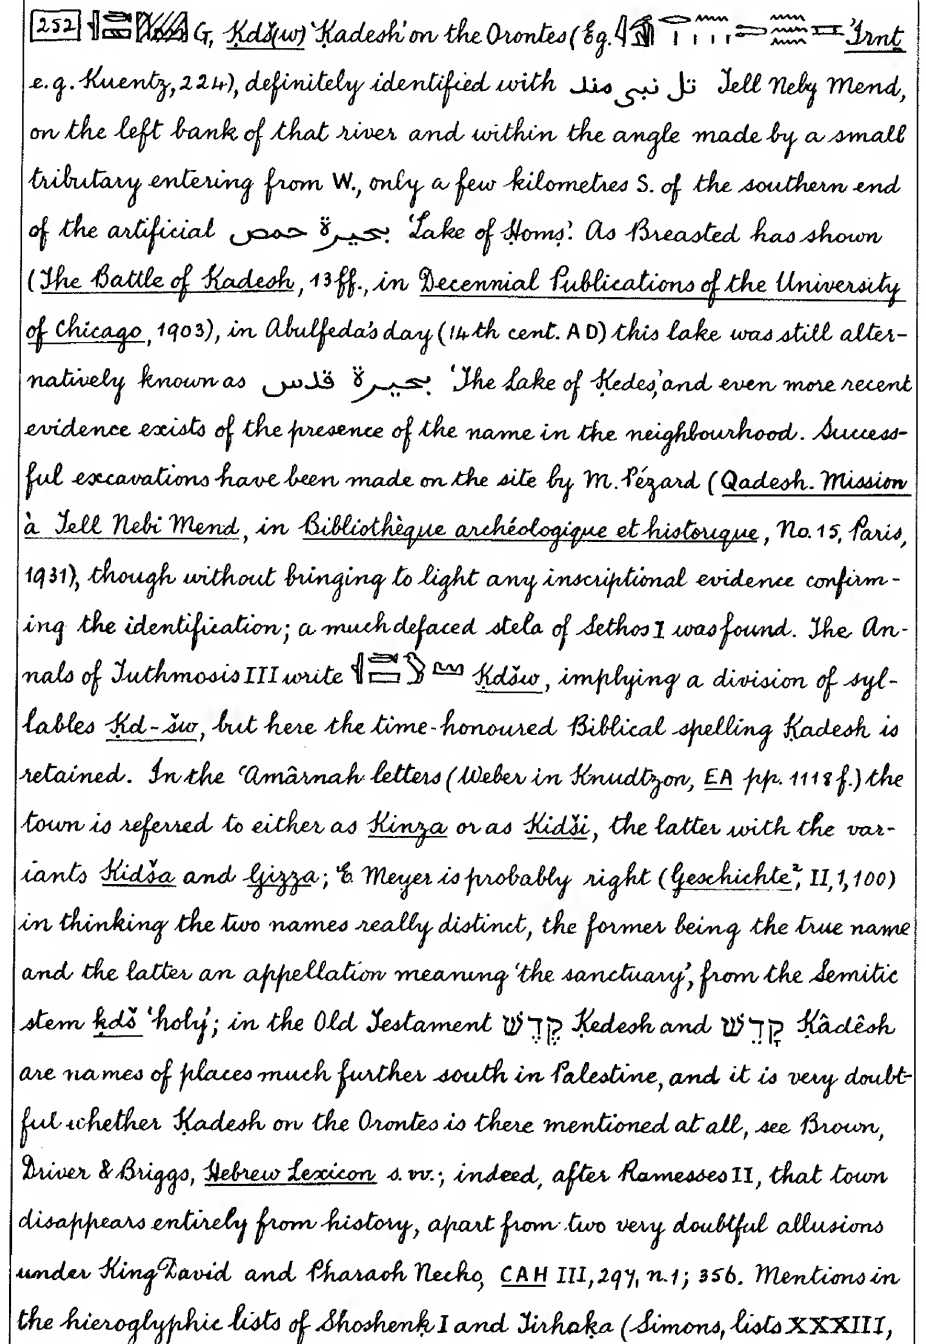 252 G, Ḳdš(w) 'Ḳadesh' on the Orontes (Eg. 'Irnt
e.g. Kuentz, 224), definitely identified with تل نبى مند Tell Neby Mend,
on the left bank of that river and within the angle made by a small
tributary entering from W., only a few kilometres S. of the southern end
of the artificial بحيرة حمص 'Lake of Ḥomṣ'. As Breasted has shown
(The Battle of Kadesh, 13ff., in Decennial Publications of the University
of Chicago, 1903), in Abulfeda's day (14th cent. AD) this lake was still alter-
natively known as بحيرة قدس 'The Lake of Ḳedes,' and even more recent
evidence exists of the presence of the name in the neighbourhood. Success-
ful excavations have been made on the site by M. Pézard (Qadesh. Mission
à Tell Nebi Mend, in Bibliothèque archéologique et historique, No. 15, Paris,
1931), though without bringing to light any inscriptional evidence confirm-
ing the identification; a much defaced stela of Sethos I was found. The An-
nals of Tuthmosis III write Ḳdšw, implying a division of syl-
lables Ḳd-šw, but here the time-honoured Biblical spelling Ḳadesh is
retained. In the 'Amârnah letters (Weber in Knudtzon, EA pp. 1118 f.) the
town is referred to either as Kinza or as Kidši, the latter with the var-
iants Kidša and Gizza; E Meyer is probably right (Geschichte², II,1,100)
in thinking the two names really distinct, the former being the true name
and the latter an appellation meaning 'the sanctuary', from the Semitic
stem ḳdš 'holy'; in the Old Testament קֶדֶשׁ Ḳedesh and קָדֵשׁ Ḳâdêsh
are names of places much further south in Palestine, and it is very doubt-
ful whether Ḳadesh on the Orontes is there mentioned at all, see Brown,
Driver & Briggs, Hebrew Lexicon s. vv.; indeed, after Ramesses II, that town
disappears entirely from history, apart from two very doubtful allusions
under King David and Pharaoh Necho, CAH III, 297, n.1; 356. Mentions in
the hieroglyphic lists of Shoshenk I and Tirhaḳa (Simons, lists XXXIII,